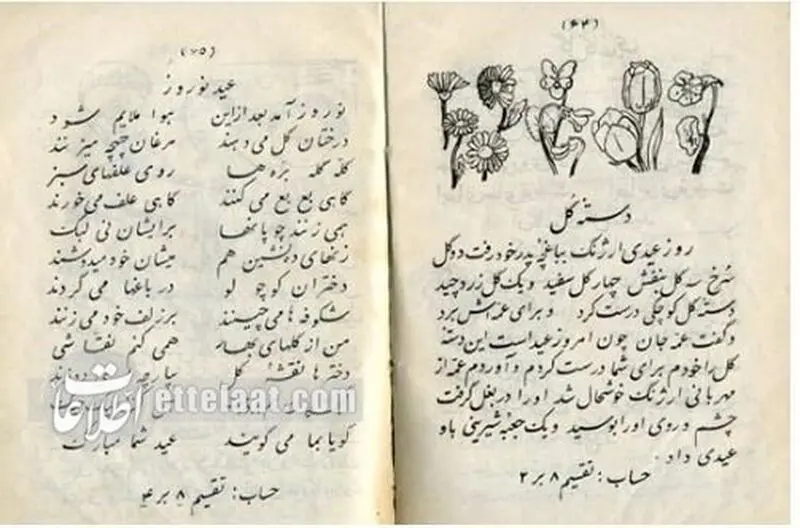 (۴۴)
دسته گل
روز عیدی ارژنگ بباغچهٔ پدر خود رفت دو گل
سرخ سه گل بنفش چهار گل سفید و یک گل زرد چید
دسته گل کوچکی درست کرد و برای عمه‌اش برد
و گفت عمه جان چون امروز عید است این دسته
گل را خودم برای شما درست کردم و آوردم عمه از
مهربانی ارژنگ خوشحال شد او را در بغل گرفت
چشم و روی او را بوسید و یک جعبه شیرینی باو
عیدی داد.
حساب: تقسیم ۸ بر ۲
(۴۵)
عید نوروز
نوروز آمد بعد از این هوا ملایم شود
درختان گل می‌دهند مرغان چهچه میزنند
گله گله بره‌ها روی علفهای سبز
گاهی بع بع می‌کنند گاهی علف می‌خورند
هی زنند چوپانها برایشان نی لبک
زنهای ده‌نشین هم میشان خود میدوشند
دختران کوچولو در باغها می‌گردند
شکوفه‌ها می‌چینند بر زلف خود می‌زنند
من از گلهای بهار همی کنم نقاشی
دخترها نقش گل
گویا بما می‌گویند عید شما مبارک
حساب: تقسیم ۸ بر ۴
اطلاعات
ettelaat.com